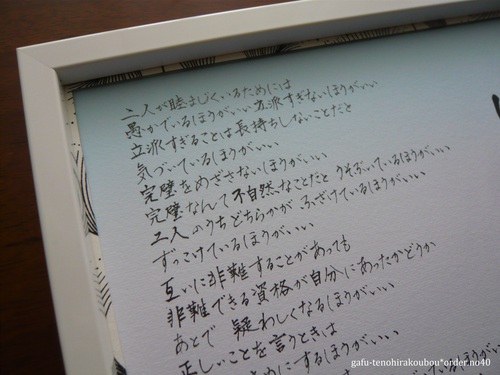 二人が睦まじくいるためには
愚かでいるほうがいい 立派すぎないほうがいい
立派すぎることは長持ちしないことだと
気づいているほうがいい
完璧をめざさないほうがいい
完璧なんて不自然なことだと うそぶいているほうがいい
二人のうちどちらかが ふざけているほうがいい
ずっこけているほうがいい
互いに非難することがあっても
非難できる資格が自分にあったかどうか
あとで 疑わしくなるほうがいい
正しいことを言うときは
めにするほうがいい
gafu-tenohirakoubou*order.no40